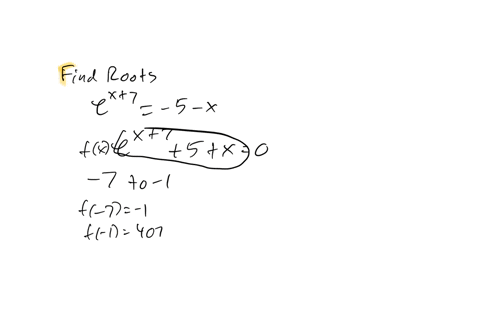 Find Roots
e^{x+7} = -5 - x
f(x) = e^{x+7} + 5 + x = 0
-7 to -1
f(-7) = -1
f(-1) = 407